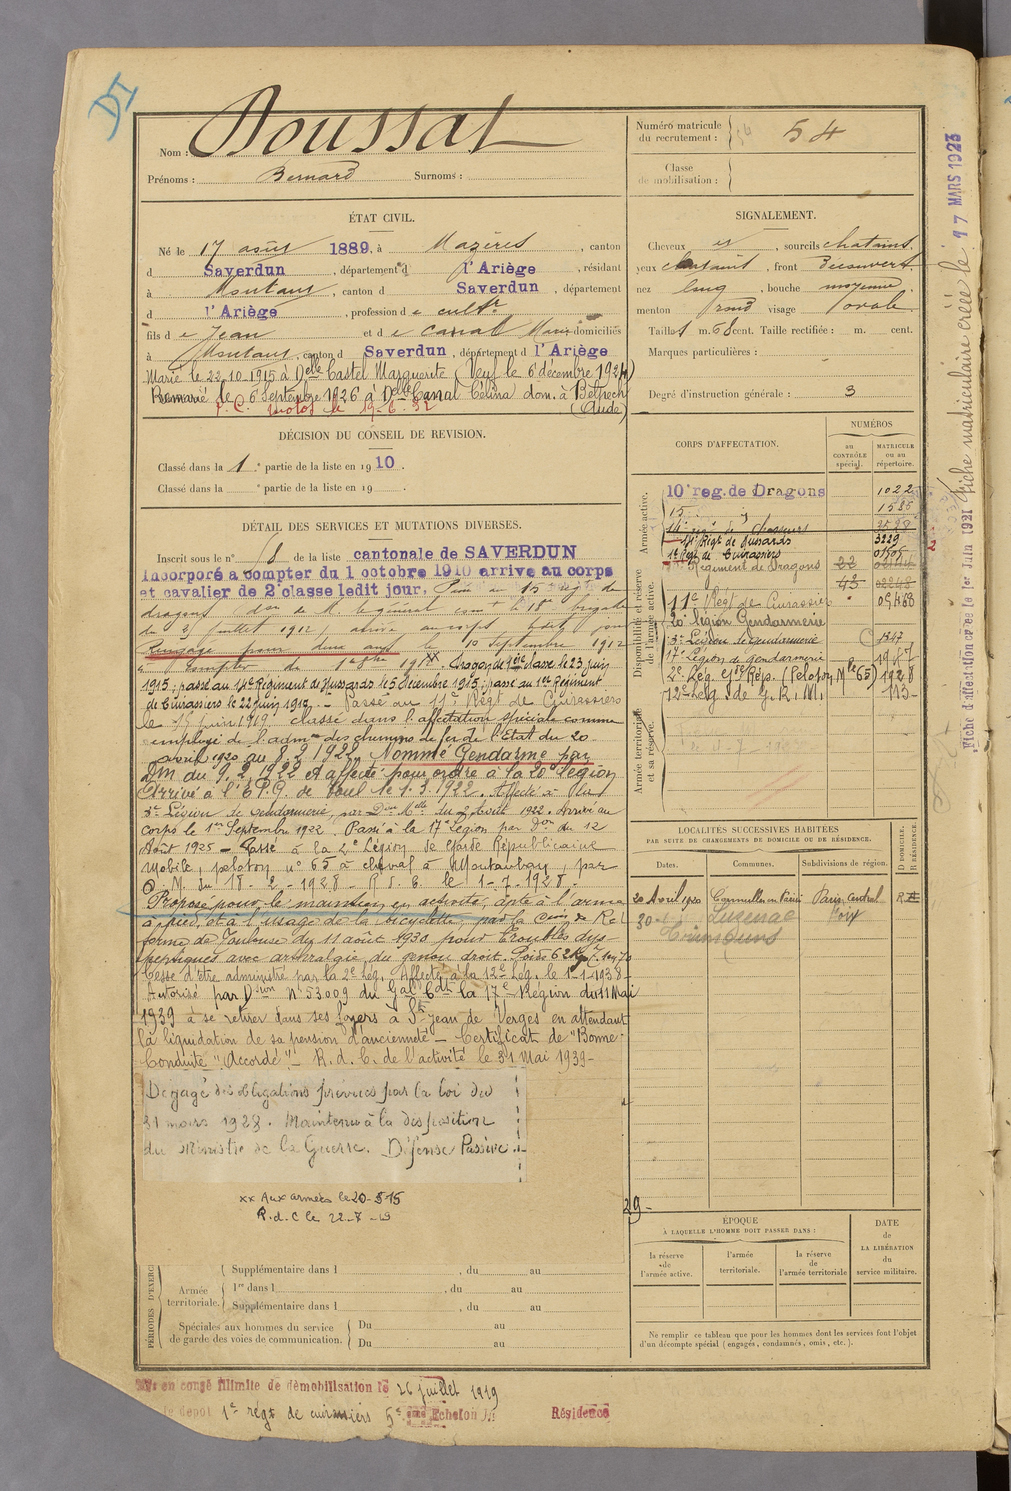 DI
Nom : Doussat
Prénoms : Bernard Surnoms :
Numéro matricule du recrutement : 54
Classe de mobilisation :
ÉTAT CIVIL.
Né le 17 août 1889, à Mazères, canton
d Saverdun, département d l'Ariège, résidant
à Montaut, canton d Saverdun, département
d l'Ariège, profession de cultr
fils de Jean et de Canal Marie domiciliés
à Montaut, canton d Saverdun, département d l'Ariège
Marié le 22.10.1915 à Delle Castel Marguerite (Veuf le 6 décembre 1924)
Remarié le 6 Septembre 1926 à Delle Canal Célina dom. à Belpech
(Aude)
SIGNALEMENT.
Cheveux et, sourcils chatains.
yeux chatains, front Découvert
nez long, bouche moyenne
menton rond visage ovale.
Taille: 1 m. 68 cent. Taille rectifiée : m. cent.
Marques particulières :
Degré d'instruction générale : 3
DÉCISION DU CONSEIL DE REVISION.
Classé dans la 1e partie de la liste en 1910.
Classé dans la e partie de la liste en 19 .
DÉTAIL DES SERVICES ET MUTATIONS DIVERSES.
Inscrit sous le n° 58 de la liste cantonale de SAVERDUN
Incorporé à compter du 1 octobre 1910 arrive au corps
et cavalier de 2e classe ledit jour.
dragons
du 25 juillet 1912
Rengagé pour deux ans le 10 Septembre 1912
à compter du 1er
Dragon de 1ère classe le 23 juin
1915; passé au 14e Régiment de Hussards le 5 décembre 1915; passé au 1er Régiment
de Cuirassiers le 22 juin 1919. - Passé au 11e Régt de Cuirassiers
le 15 juin 1919. classé dans l'affectation spéciale comme
employé de l'admon des chemins de fer de l'Etat du 20
avril 1920 au 8.2.1922. Nommé Gendarme par
DM du 9.2.1922 et affecté pour ordre à la 20e légion
Arrivé à l'E.P.G. de Toul le 1.3.1922. Affecté à la
3e Légion de Gendarmerie, par Don Mlle du 2 Août 1922. Arrivé au
corps le 1er Septembre 1922. Passé à la 17e Légion par Don du 12
Août 1925 - Passé à la 2e Légion de Garde Républicaine
Mobile, peloton n° 65 à cheval à Montauban, par
O.M. du 18-2-1928 - R.S.C. le 1-7-1928-
Proposé pour le maintien en activité, apte à l'arme
à pied et à l'usage de la bicyclette par la Cion de Ré
forme de Toulouse du 11 août 1930 pour Troubles dys
peptiques avec arthralgie du genou droit. Poids 62 Kgs
Cesse d'être administré par la 2e Lég. Affecté à la 12e Lég. le 1-1-1938-
Autorisé par Dsion N° 53.009 du Gal Cdt la 17e Région du 11 Mai
1939 à se retirer dans ses foyers à St Jean de Verges en attendant
la liquidation de sa pension d'ancienneté - Certificat de "Bonne
Conduite "Accordé" - R.d.C. de l'activité le 31 Mai 1939-
Dégagé des obligations prévues par la loi du
31 mars 1928. Maintenu à la disposition
du Ministre de la Guerre. Défense Passive.
xx Aux armées le 20-5-15
R.d.C le 22-7-19
CORPS D'AFFECTATION.
NUMÉROS
au CONTRÔLE spécial.
MATRICULE ou au répertoire.
Armée active.
10e reg. de Dragons 1022
15 1585
14e régt de chasseurs 2528
14e Régt de Hussards 3229
1er Régt de Cuirassiers
Disponibilité et réserve de l'armée active.
Régiment de Dragons 22
43
11e Régt de Cuirassier
20e légion Gendarmerie
3e Légion de Gendarmerie 1347
17e Légion de gendarmerie 1967
2e Lég. Gde Rép. (Peloton Mle 65) 1928
12e Lég. de G.R.M. 113-
Armée territoriale et sa réserve.
LOCALITÉS SUCCESSIVES HABITÉES
PAR SUITE DE CHANGEMENTS DE DOMICILE OU DE RÉSIDENCE.
Dates. Communes. Subdivisions de région. D DOMICILE. R RÉSIDENCE.
20 Avril 1920 Cormeilles en Parisis Paris central R
30 Luzenac Foix
29-
ÉPOQUE
À LAQUELLE L'HOMME DOIT PASSER DANS :
la réserve de l'armée active.
l'armée territoriale.
la réserve de l'armée territoriale
DATE
de
LA LIBÉRATION
du
service militaire.
Ne remplir ce tableau que pour les hommes dont les services font l'objet
d'un décompte spécial (engagés, condamnés, omis, etc.).
PÉRIODES D'EXERCI
Armée territoriale.
Supplémentaire dans l , du au
1re dans l , du au
Supplémentaire dans l , du au
Spéciales aux hommes du service
de garde des voies de communication.
Du au
Du au
en congé illimité de démobilisation le 26 juillet 1919
dépot 1er régt de cuirassiers 5e Echelon
Résidence
Fiche d'affectation créée le 1er Juin 1921 Fiche matriculaire créée le 17 MARS 1923